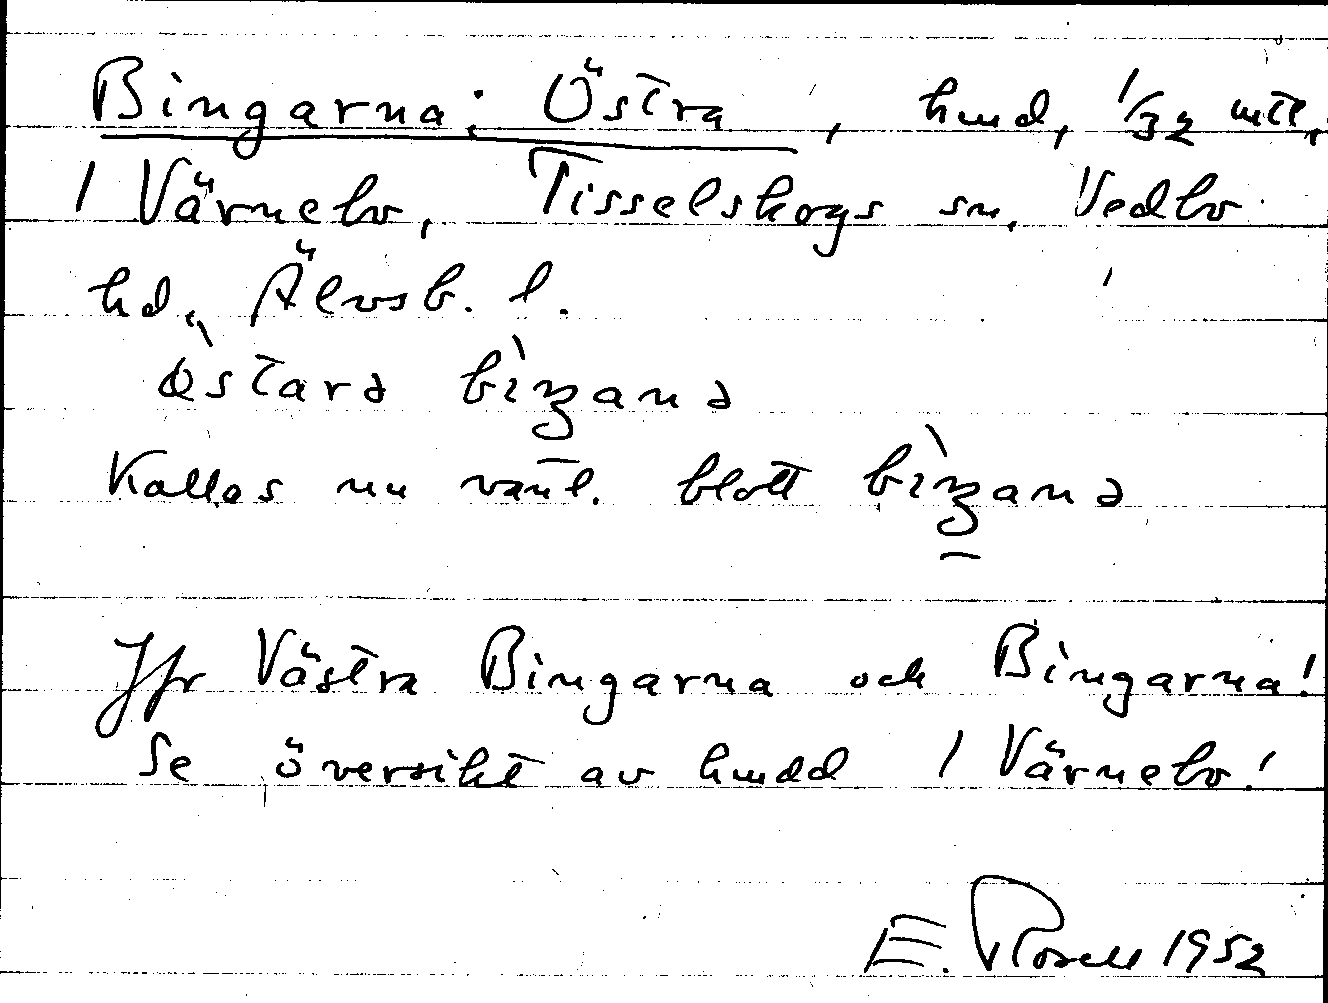 Bingarna: Östra, hmd, 1/32 mtl,
1 Värnebo, Tisselskogs sn, Vedbo
hd, Älvsb. l.
ö̀starə bìŋanə
Kallas nu vanl. blott bìŋanə
Jfr Västra Bingarna och Bingarna!
Se översikt av hmdd 1 Värnebo!
E. Rosell 1952